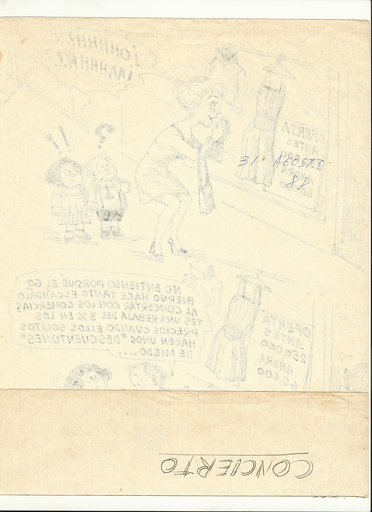 ¡OHHHH!..
¡AAHHHH!
!!
?
OFERTA
ANTES
AHORA
31 AGOSTO
NO ENTIENDO PORQUE EL GO
BIERNO HACE TANTO ESCANDALO
AL CONCERTAR CON LOS COMERCIAN
TES UNA REBAJA DEL 3% EN LOS
PRECIOS CUANDO ELLOS SOLITOS
HACEN UNOS "DESCUENTONES"
DE MIEDO....
OFERTA
ANTES
250.000
AHORA
60.000
CONCIERTO